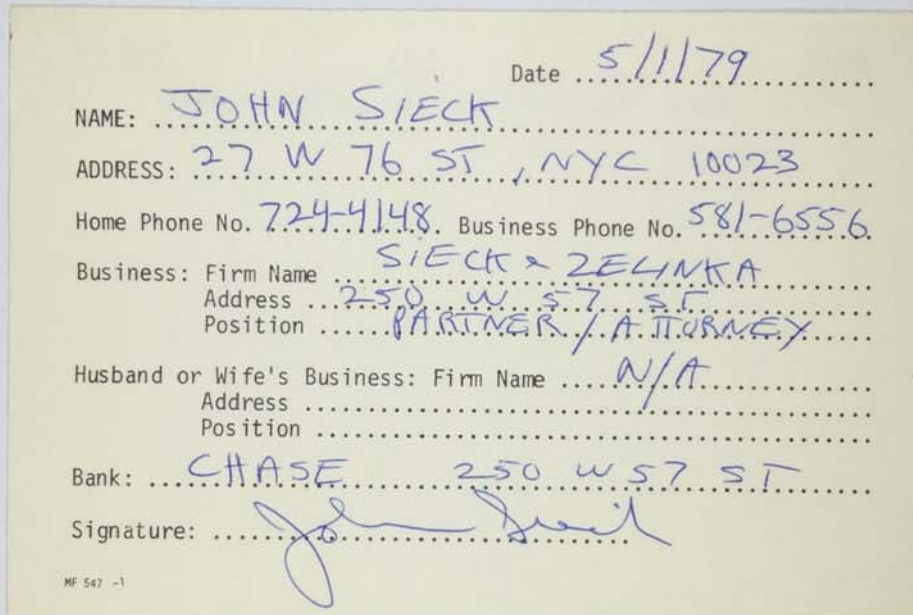 Date 5/1/79
NAME: JOHN SIECK
ADDRESS: 27 W 76 ST, NYC 10023
Home Phone No. 724-4148. Business Phone No. 581-6556
Business: Firm Name SIECK & ZELINKA
Address 250 W 57 ST
Position PARTNER / ATTORNEY
Husband or Wife's Business: Firm Name N/A
Address
Position
Bank: CHASE 250 W 57 ST
Signature: John Sieck
MF 547 -1